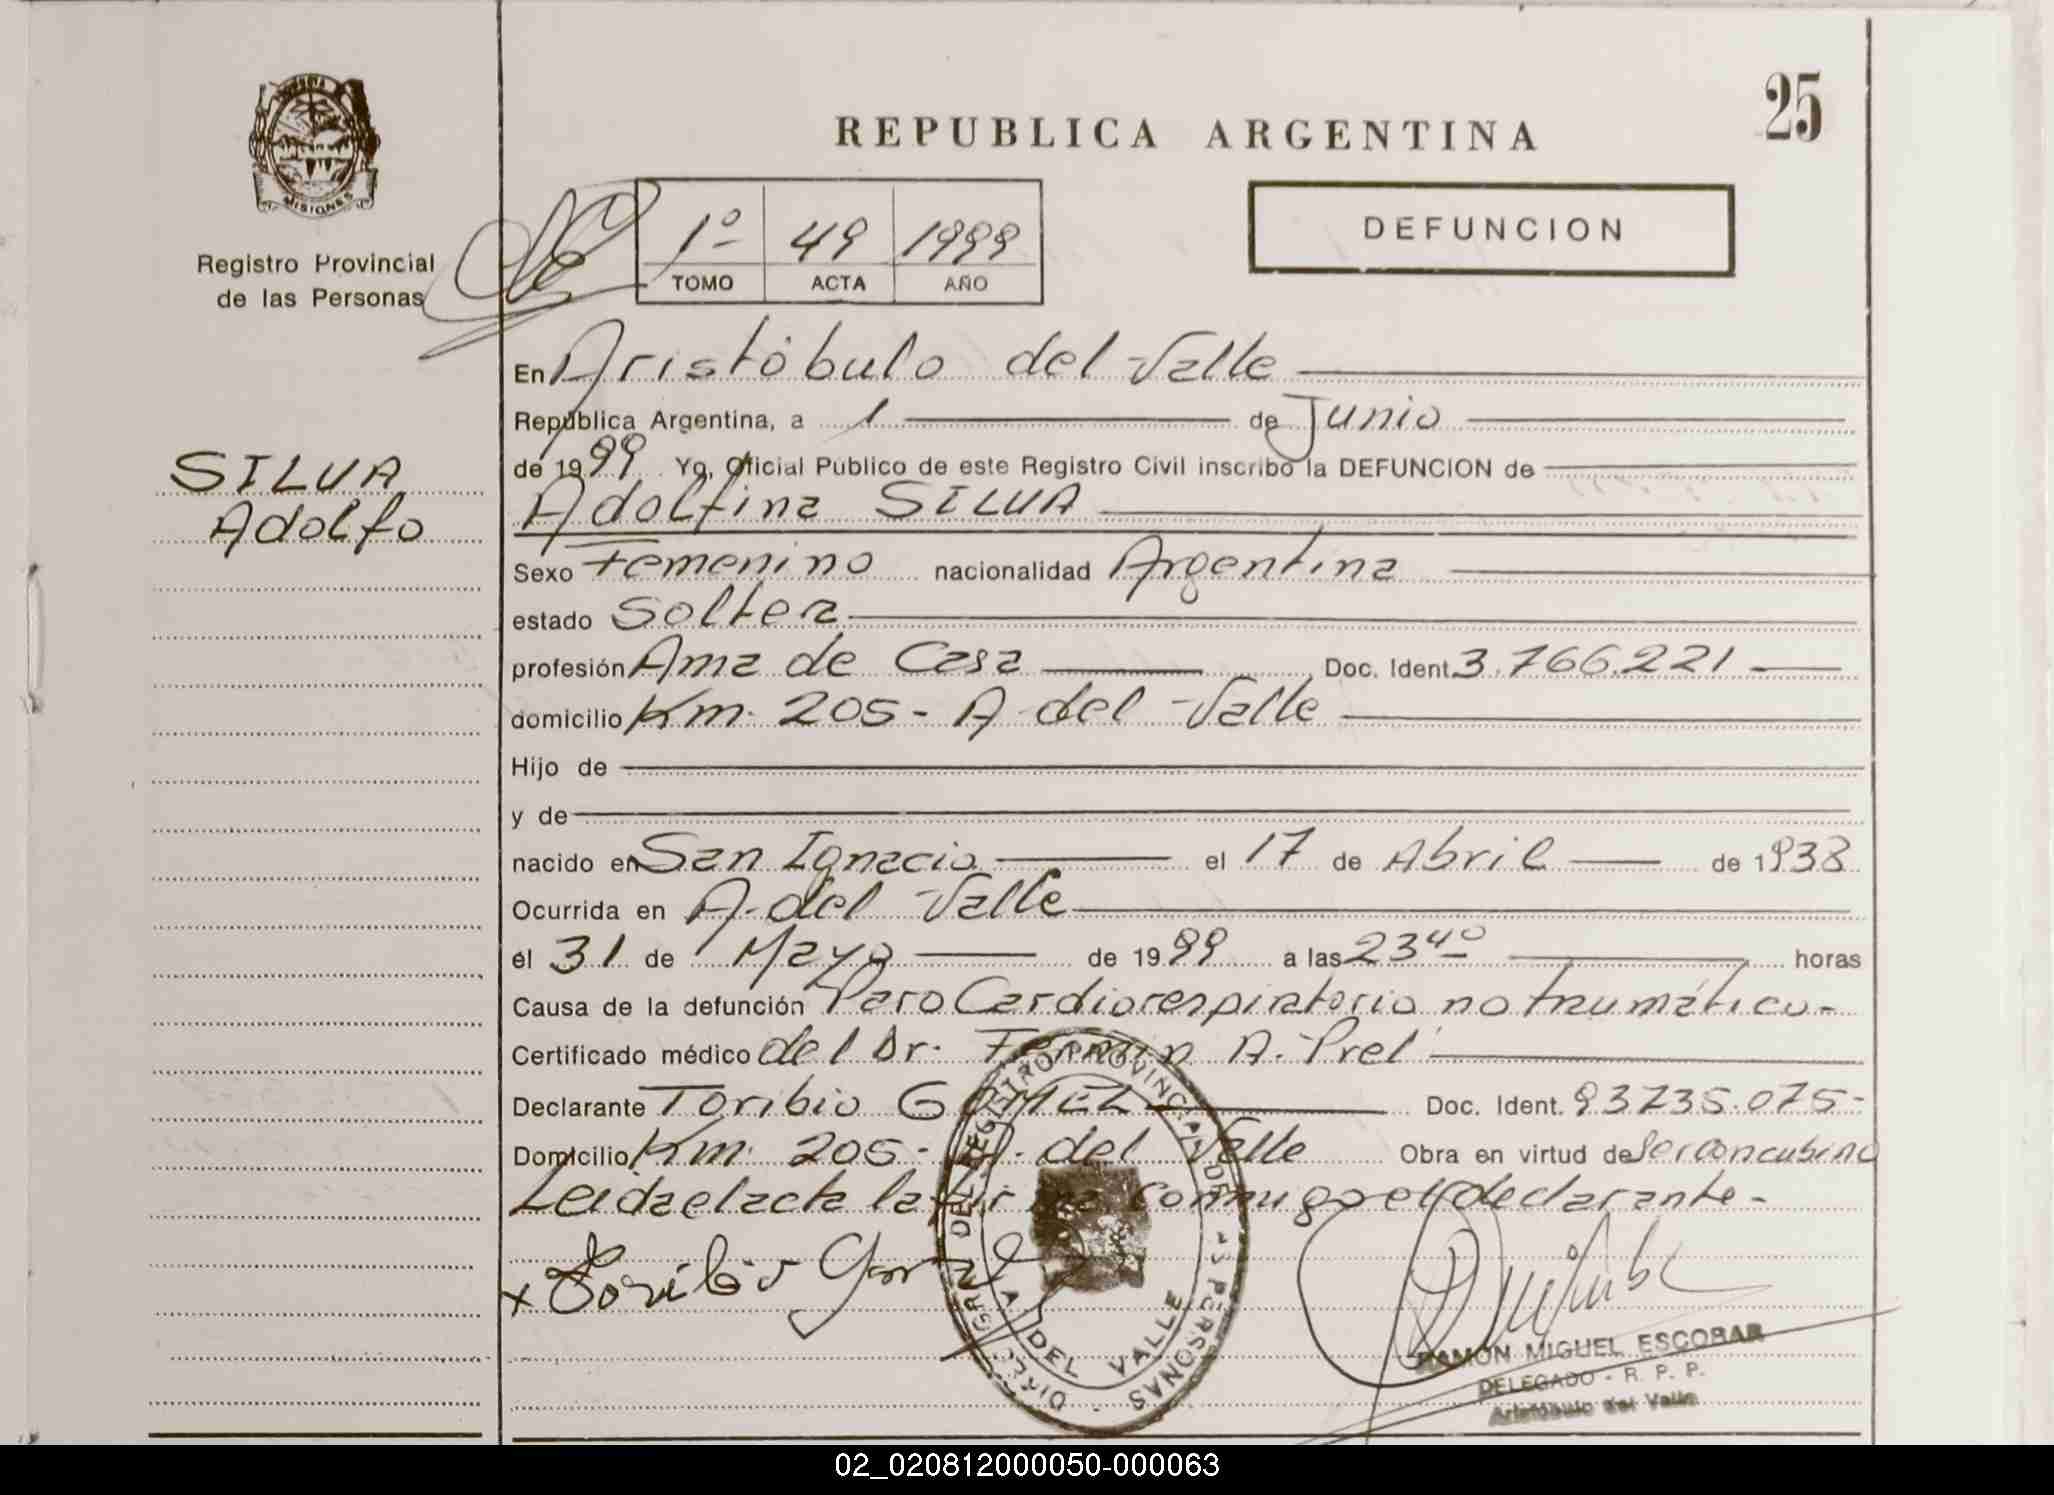 MISIONES
Registro Provincial
de las Personas
SILVA
Adolfo
REPUBLICA ARGENTINA
25
1º 49 1999
TOMO ACTA AÑO
DEFUNCION
En Aristóbulo del Valle
República Argentina, a 1 de Junio
de 1999 Yo, Oficial Público de este Registro Civil inscribo la DEFUNCION de
Adolfina SILVA
Sexo Femenino nacionalidad Argentina
estado Soltera
profesión Ama de Casa Doc. Ident. 3.766.221
domicilio Km. 205 - A. del Valle
Hijo de
y de
nacido en San Ignacio el 17 de Abril de 1938
Ocurrida en A. del Valle
el 31 de Mayo de 1999 a las 23 40 horas
Causa de la defunción Paro Cardiorespiratorio no traumático -
Certificado médico del Dr. Fermin A. Prel
Declarante Toribio GOMEZ Doc. Ident. 93735.075 -
Domicilio Km. 205 - A. del Valle Obra en virtud de Ser concubino
Leida el acta la firma conmigo el declarante -
x Toribio Gomez
DIREC. GRAL. DEL REGISTRO PROVINCIAL DE LAS PERSONAS -
A. DEL VALLE
RAMON MIGUEL ESCOBAR
DELEGADO - R. P. P.
Aristóbulo del Valle
02_020812000050-000063